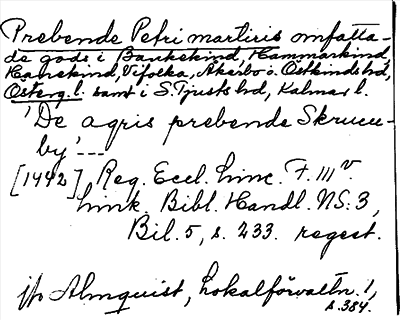 Prebende Petri martiris omfatta-
de gods i Bankekind, Hammarkind,
Hanekind, Vifolka, Åkerbo o. Östkinds hd,
Österg. l. samt i S. Tjusts hd, Kalmar l.
'De agris prebende Skruccu-
by' ---
[1442] Reg. Eccl. Linc. F. 111 v.
Link. Bibl. Handl. NS. 3,
Bil. 5, s. 233. regest.
jfr Almquist, Lokalförvaltn. 1,
s. 384.